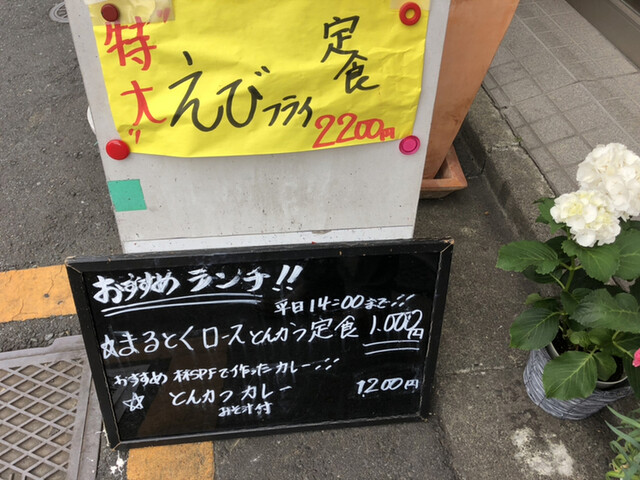 特大!! えびフライ 定食
2200円
おすすめ ランチ!!
平日14:00まで!!
☆まるとくロースとんかつ定食 1,000円
おすすめ 林SPFで作ったカレー!!
☆とんかつカレー 1,200円
おみそ汁付